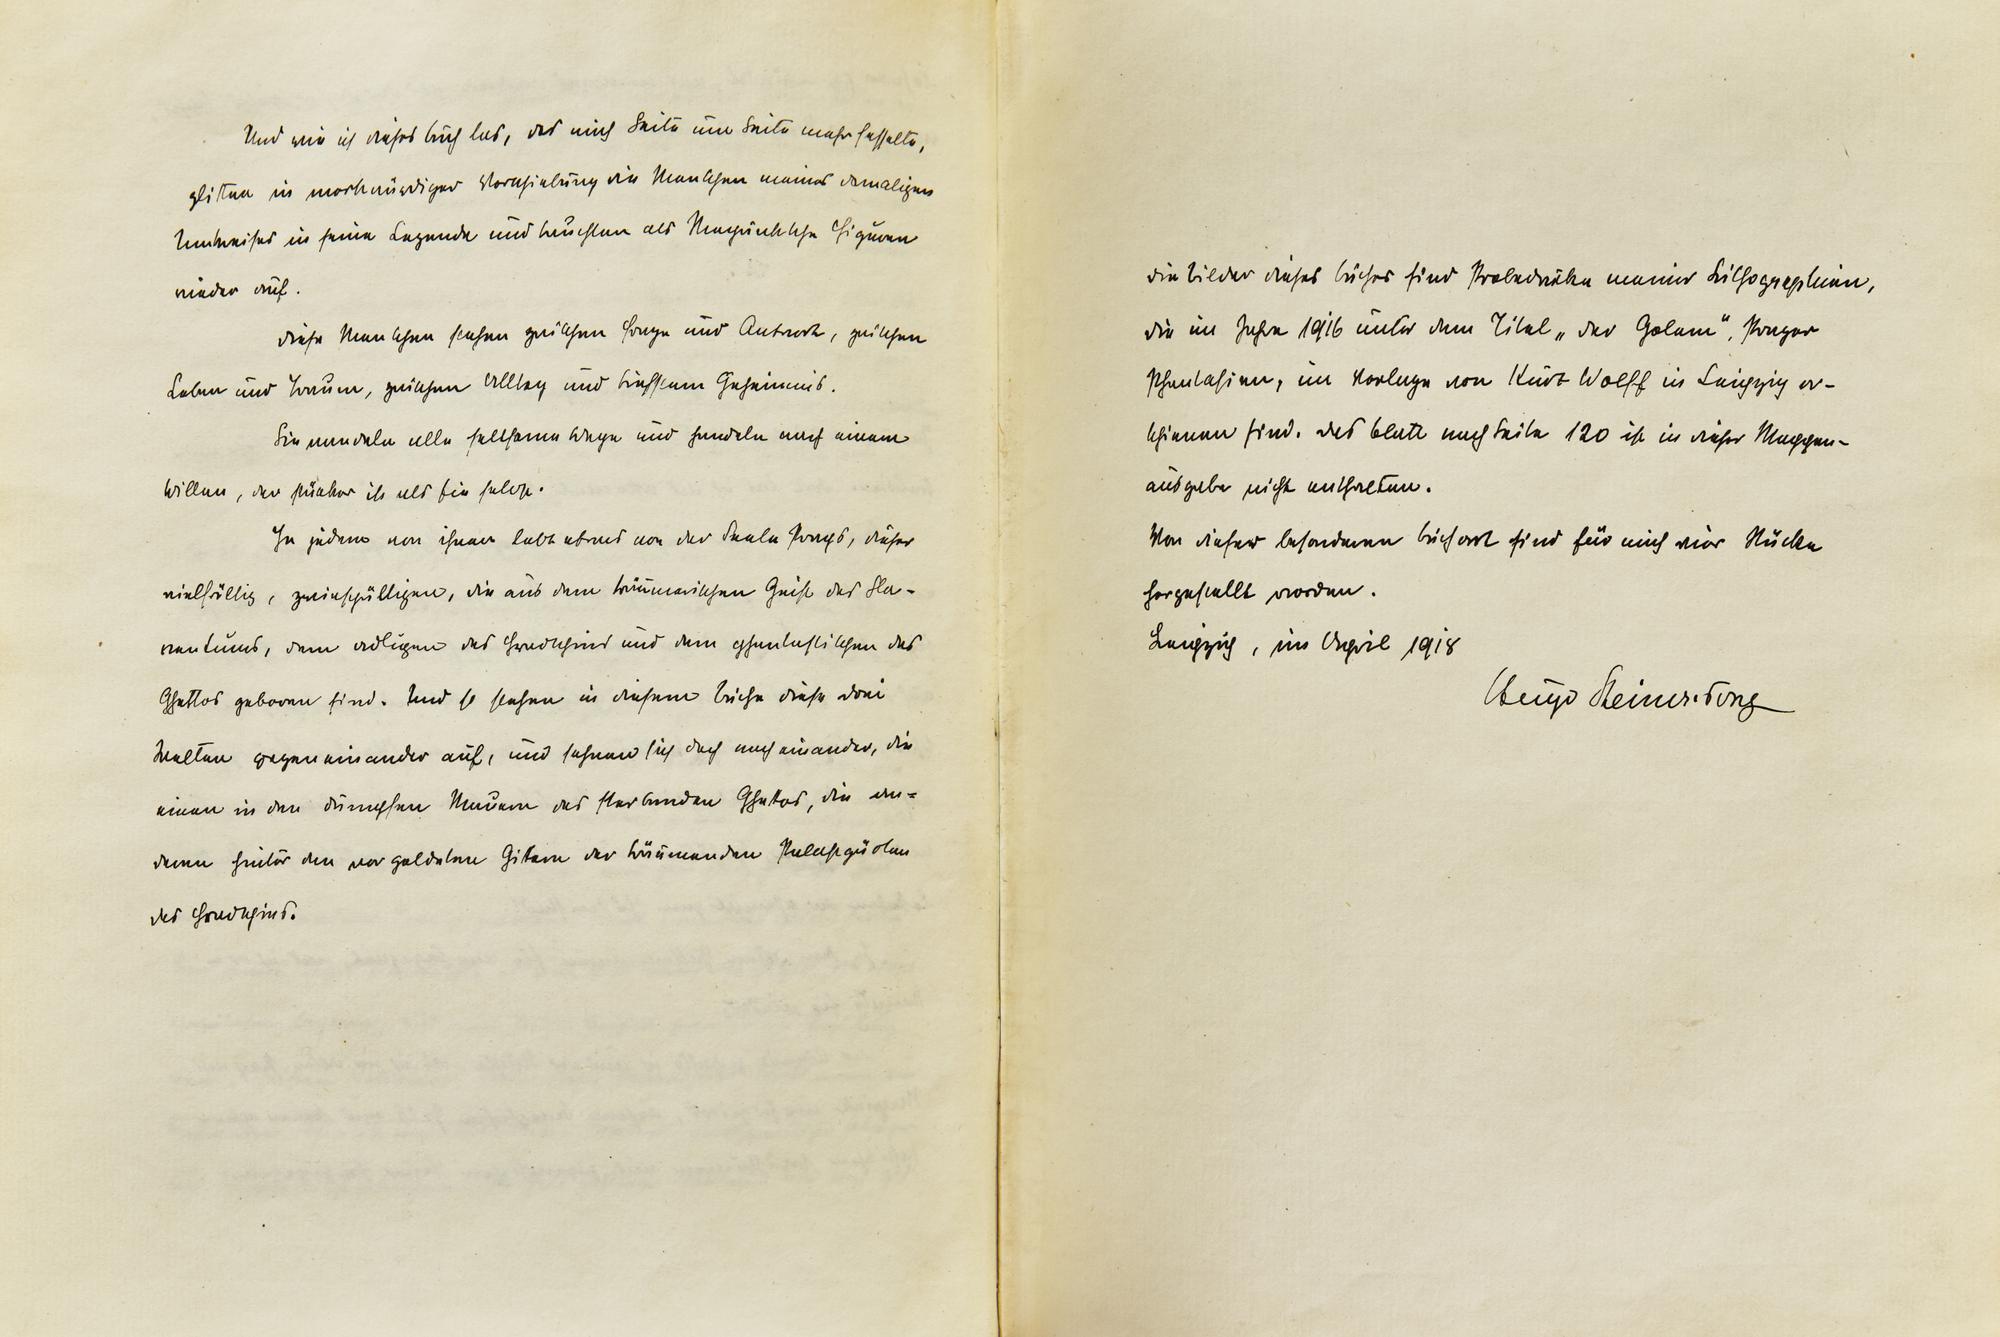 Und wie ich dieses Buch las, das mich Seite um Seite mehr fesselte,
glitten in merkwürdiger Verschiebung die Menschen meines damaligen
Umkreises in seine Legende und tauchten als Meyrinksche Figuren
wieder auf.
Diese Menschen stehen zwischen Frage und Antwort, zwischen
Leben und Traum, zwischen Alltag und tiefstem Geheimnis.
Sie wandeln alle seltsame Wege und handeln nach einem
Willen, der stärker ist als sie selbst.
In jedem von ihnen lebt etwas von der Seele Prags, dieser
vielfältig, zwiespältigen, die aus dem träumerischen Geist des Sla-
ventums, dem adligen des Hradschins und dem phantastischen des
Ghettos geboren sind. Und so stehen in diesem Buche diese drei
Welten gegeneinander auf, und sehnen sich doch nach einander, die
einen in den dumpfen Mauern des sterbenden Ghettos, die an-
deren hinter den vergoldeten Gittern der träumenden Palastgärten
des Hradschins.
Die Bilder dieses Buches sind Probedrucke meiner Lithographien,
die im Jahre 1916 unter dem Titel „Der Golem“, Prager
Phantasien, im Verlage von Kurt Wolff in Leipzig er-
schienen sind. Das Blatt nach Seite 120 ist in dieser Mappen-
ausgabe nicht enthalten.
Von dieser besonderen Buchart sind für mich vier Stücke
hergestellt worden.
Leipzig, im April 1918
Hugo Steiner-Prag